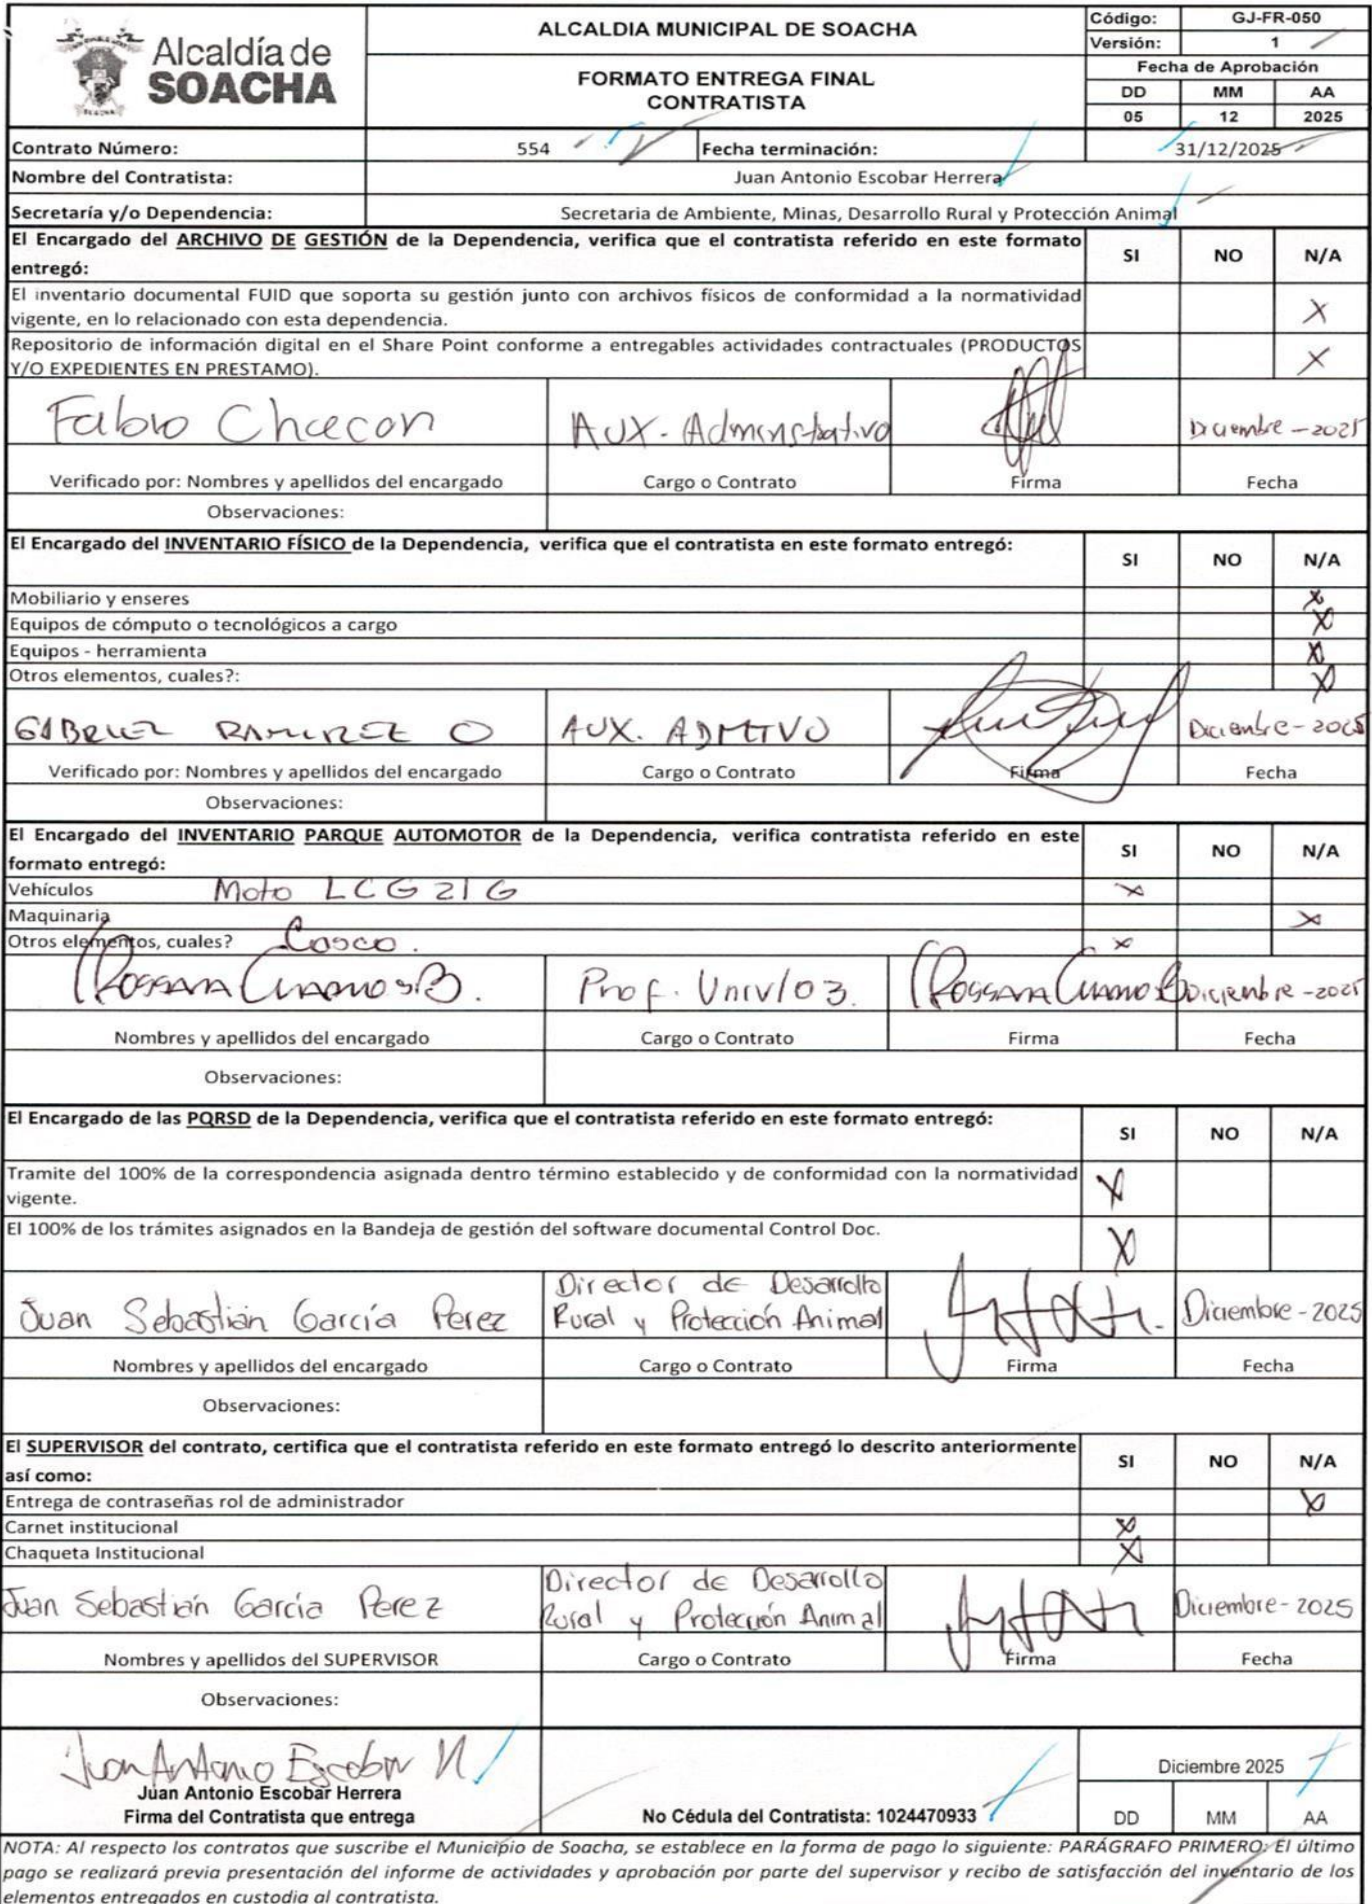 Alcaldía de
SOACHA
ALCALDIA MUNICIPAL DE SOACHA
FORMATO ENTREGA FINAL
CONTRATISTA
Código: GJ-FR-050
Versión: 1
Fecha de Aprobación
DD MM AA
05 12 2025
Contrato Número: 554 Fecha terminación: 31/12/2025
Nombre del Contratista: Juan Antonio Escobar Herrera
Secretaría y/o Dependencia: Secretaria de Ambiente, Minas, Desarrollo Rural y Protección Animal
El Encargado del ARCHIVO DE GESTIÓN de la Dependencia, verifica que el contratista referido en este formato
entregó:
SI NO N/A
El inventario documental FUID que soporta su gestión junto con archivos físicos de conformidad a la normatividad
vigente, en lo relacionado con esta dependencia. X
Repositorio de información digital en el Share Point conforme a entregables actividades contractuales (PRODUCTOS
Y/O EXPEDIENTES EN PRESTAMO). X
Fabio Chacon AUX. Administrativo Diciembre - 2025
Verificado por: Nombres y apellidos del encargado Cargo o Contrato Firma Fecha
Observaciones:
El Encargado del INVENTARIO FÍSICO de la Dependencia, verifica que el contratista en este formato entregó:
SI NO N/A
Mobiliario y enseres X
Equipos de cómputo o tecnológicos a cargo X
Equipos - herramienta X
Otros elementos, cuales?: X
GABRIEL RAMIREZ O AUX. ADMTIVO Diciembre - 2025
Verificado por: Nombres y apellidos del encargado Cargo o Contrato Firma Fecha
Observaciones:
El Encargado del INVENTARIO PARQUE AUTOMOTOR de la Dependencia, verifica contratista referido en este
formato entregó:
SI NO N/A
Vehículos Moto LCG 21G X
Maquinaria X
Otros elementos, cuales? Casco. X
Prof. Univ/03. Diciembre - 2025
Nombres y apellidos del encargado Cargo o Contrato Firma Fecha
Observaciones:
El Encargado de las PQRSD de la Dependencia, verifica que el contratista referido en este formato entregó:
SI NO N/A
Tramite del 100% de la correspondencia asignada dentro término establecido y de conformidad con la normatividad
vigente. X
El 100% de los trámites asignados en la Bandeja de gestión del software documental Control Doc. X
Juan Sebastián García Perez Director de Desarrollo
Rural y Protección Animal Diciembre - 2025
Nombres y apellidos del encargado Cargo o Contrato Firma Fecha
Observaciones:
El SUPERVISOR del contrato, certifica que el contratista referido en este formato entregó lo descrito anteriormente
así como:
SI NO N/A
Entrega de contraseñas rol de administrador X
Carnet institucional X
Chaqueta Institucional X
Juan Sebastián García Perez Director de Desarrollo
Rural y Protección Animal Diciembre - 2025
Nombres y apellidos del SUPERVISOR Cargo o Contrato Firma Fecha
Observaciones:
Juan Antonio Escobar H
Juan Antonio Escobar Herrera
Firma del Contratista que entrega
No Cédula del Contratista: 1024470933
Diciembre 2025
DD MM AA
NOTA: Al respecto los contratos que suscribe el Municipio de Soacha, se establece en la forma de pago lo siguiente: PARÁGRAFO PRIMERO: El último
pago se realizará previa presentación del informe de actividades y aprobación por parte del supervisor y recibo de satisfacción del inventario de los
elementos entregados en custodia al contratista.